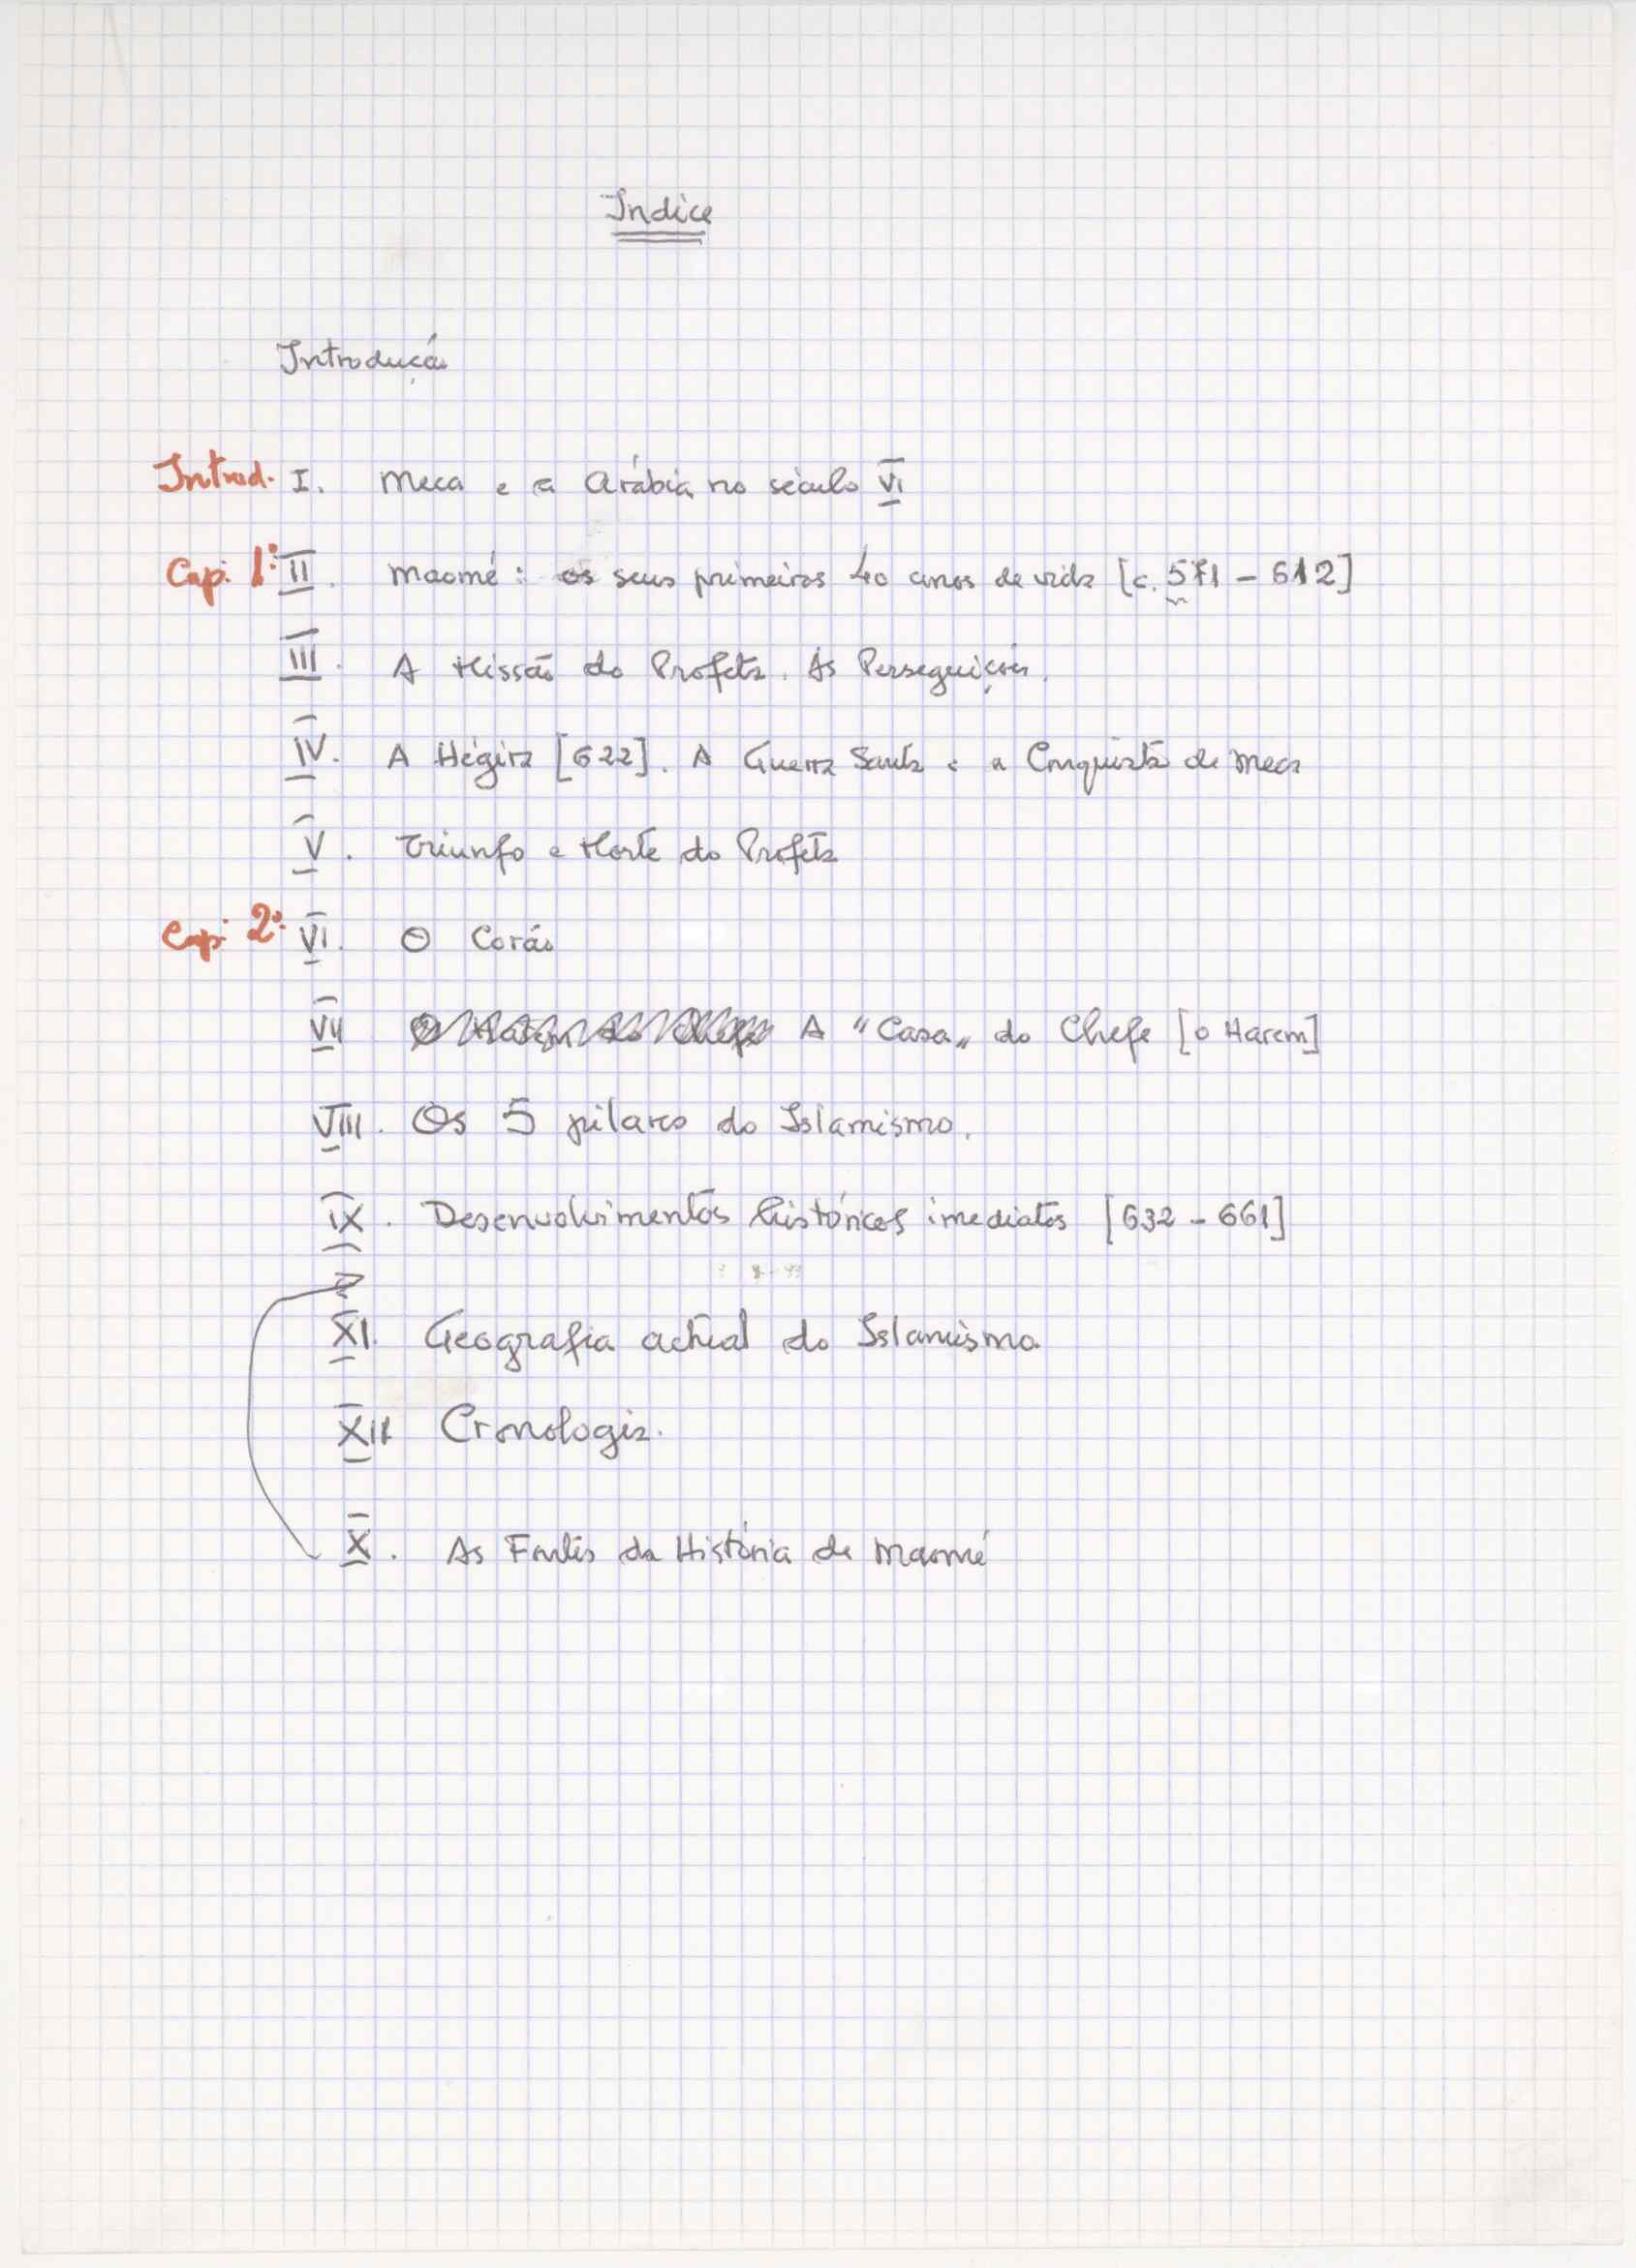 Indice
Introdução
Introd. I. Meca e a Arábia no século VI
Cap. 1º II. Maomé: os seus primeiros 40 anos de vida [c. 571 - 612]
III. A Missão do Profeta. As Perseguições.
IV. A Hégira [622]. A Guerra Santa e a Conquista de Meca
V. Triunfo e Morte do Profeta
Cap. 2º VI. O Corão
VII A "Casa" do Chefe [o Harem]
VIII. Os 5 pilares do Islamismo.
IX. Desenvolvimentos históricos imediatos [632 - 661]
XI. Geografia actual do Islamismo
XII Cronologia.
X. As Fontes da História de Maomé